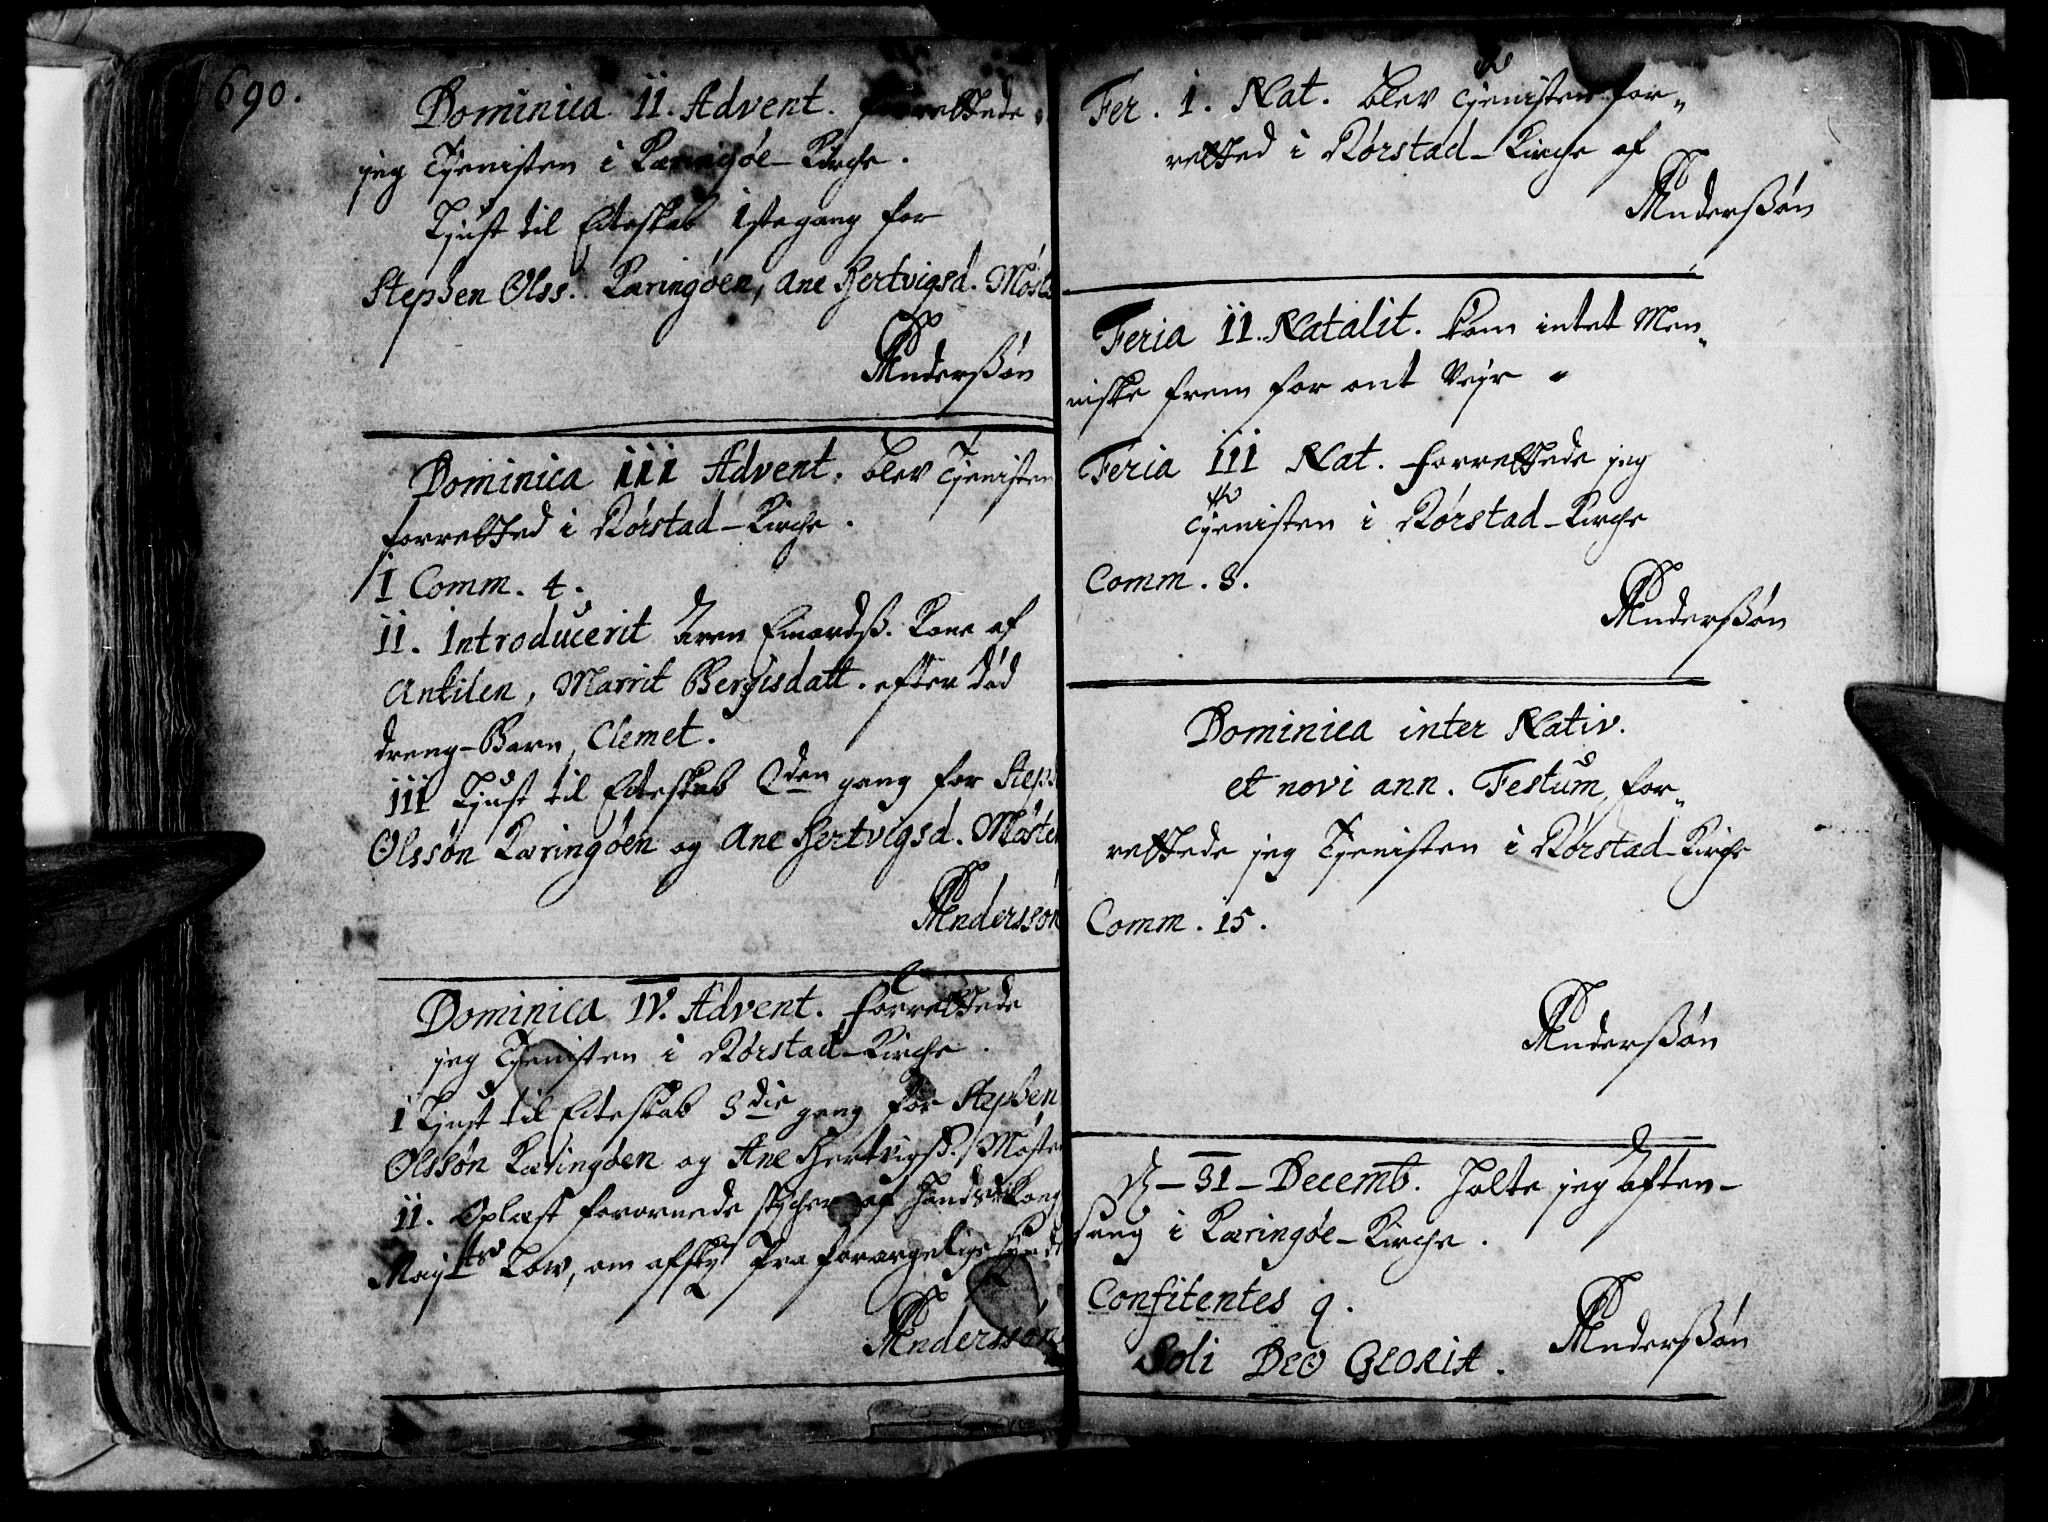 690.
Dominica II. Advent. forrettede
jeg Tjenisten i Kæringøe-Kirche.
Liust til Ecteskab 1ste gang for
Stephen Olss. Kæringøen, Ane Hertvigsd. Møste
Anderssøn
Dominica III Advent. blev Tjenisten
forretted i Rørstad-Kirche.
I Comm. 4.
II. Introducerit Aren Einardss. Kone af
Ankilen, Marrit Bergisdatt. efter død
dreng-Barn, Clemet.
III Liust til Ecteskab 2den gang for Steph
Olssøn Kæringøen og Ane Hertvigsd. Møsten
Anderssøn
Dominica IV. Advent. forrettede
jeg Tjenisten i Rørstad-Kirche.
I Liust til Ecteskab 3die gang for Stephen
Olssøn Kæringøen og Ane Hertvigsd. Møsten
II. Oplæst forornede stycher af Hands Kong
Mayts Low, om afsky fra forargelige
Anderssøn
Fer. I. Nat. blev Tjenisten for-
retted i Rørstad-Kirche af
Anderssøn
Feria II. Natalit. kom intet Men-
niske frem for ont Vejr
Feria III Nat. forrettede jeg
Tjenisten i Rørstad-Kirche
Comm. 8.
Anderssøn
Dominica inter Nativ.
et novi ann. Festum, for-
rettede jeg Tjenisten i Rørstad-Kirche
Comm. 15.
Anderssøn
D - 31 - Decemb. holte jeg aften-
sang i Kæringøe-Kirche.
Confitentes 9.
Anderssøn
Soli DEO GLORIA.